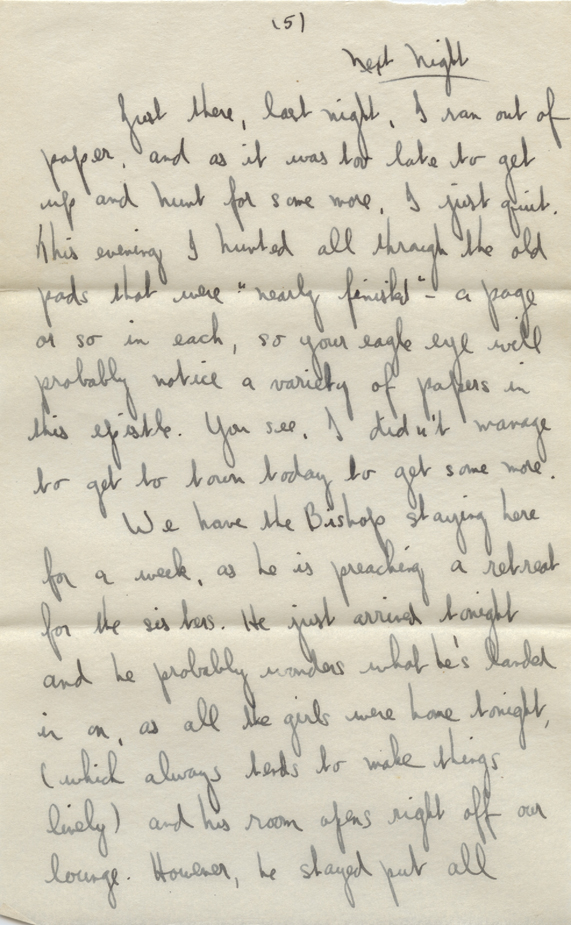 (5)
Next Night
Just there, last night, I ran out of
paper, and as it was too late to get
up and hunt for some more, I just quit.
This evening I hunted all through the old
pads that were "nearly finished" - a page
or so in each, so your eagle eye will
probably notice a variety of papers in
this epistle. You see, I didn't manage
to get to town today to get some more.
We have the Bishop staying here
for a week, as he is preaching a retreat
for the sisters. He just arrived tonight
and he probably wonders what he's landed
in on, as all the girls were home tonight,
(which always tends to make things
lively) and his room opens right off our
lounge. However, he stayed put all